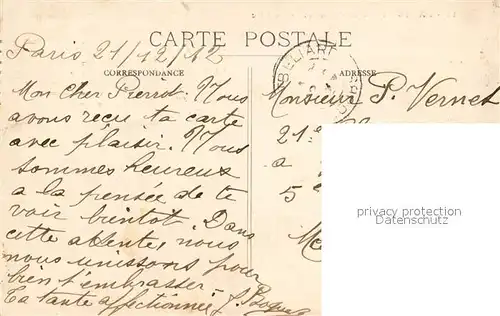 CARTE POSTALE
Paris 21/12/12
CORRESPONDANCE
ADRESSE
Mon Cher Pierrot. Nous
avons reçu ta carte
avec plaisir. Nous
sommes heureux
a la pensée de te
voir bientot. Dans
cette attente, nous
nous unissons pour
bien t'embrasser
Ta tante affectionnée
Monsieur P. Vernet
21
a
5
privacy protection
Datenschutz